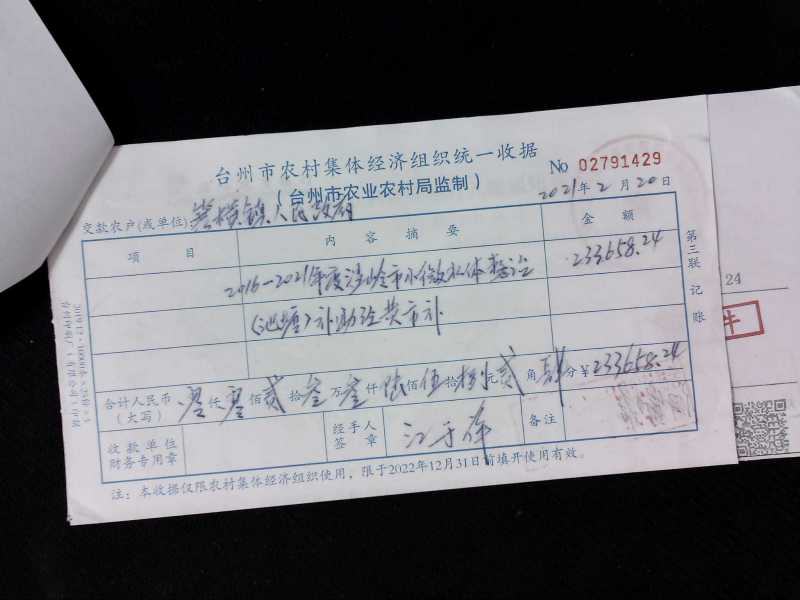 台州市农村集体经济组织统一收据
(台州市农业农村局监制)
No 02791429
2021年2月20日
交款农户(或单位) 箬横镇人民政府
项目 内容摘要 金额
2016-2021年度温岭市小微水体整治 233658.24
(池塘)补助经费市补
合计人民币(大写) 零仟零佰贰拾叁万叁仟陆佰伍拾捌元贰角肆分 ¥233658.24
收款单位财务专用章 经手人签章 备注
注:本收据仅限农村集体经济组织使用,限于2022年12月31日前填开使用有效。
第三联 记账
24